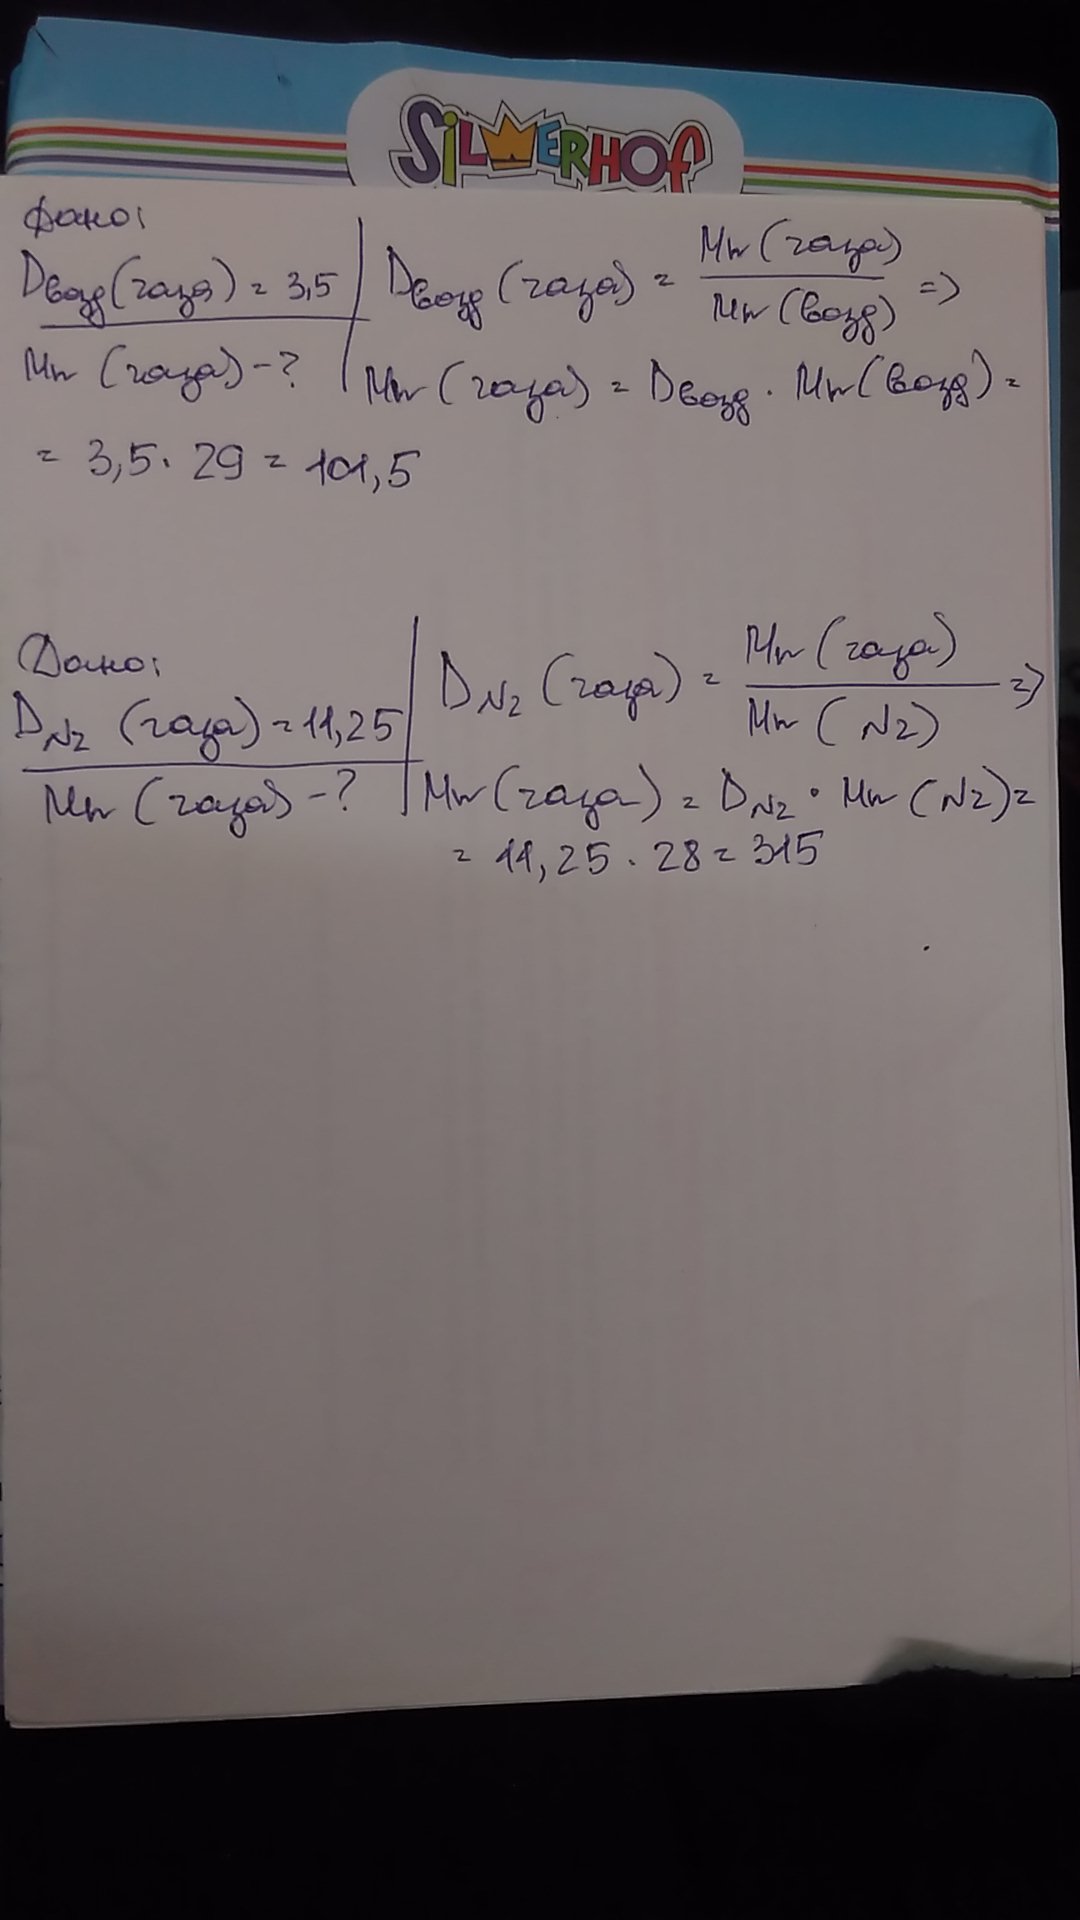 SILWERHOF
Дано:
Dвозд(газа) = 3,5
Mr (газа) - ?
Dвозд (газа) = Mr (газа) / Mr (возд) =>
Mr (газа) = Dвозд · Mr (возд) =
= 3,5 · 29 = 101,5
Дано:
DN2 (газа) = 11,25
Mr (газа) - ?
DN2 (газа) = Mr (газа) / Mr (N2) =>
Mr (газа) = DN2 · Mr (N2) =
= 11,25 · 28 = 315